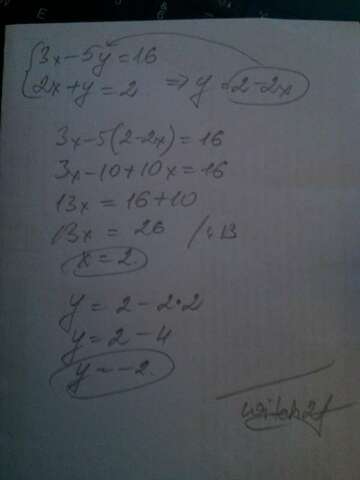 3x-5y=16
2x+y=2 => y=2-2x
3x-5(2-2x)=16
3x-10+10x=16
13x=16+10
13x=26 /:13
x=2.
y=2-2·2
y=2-4
y=-2.